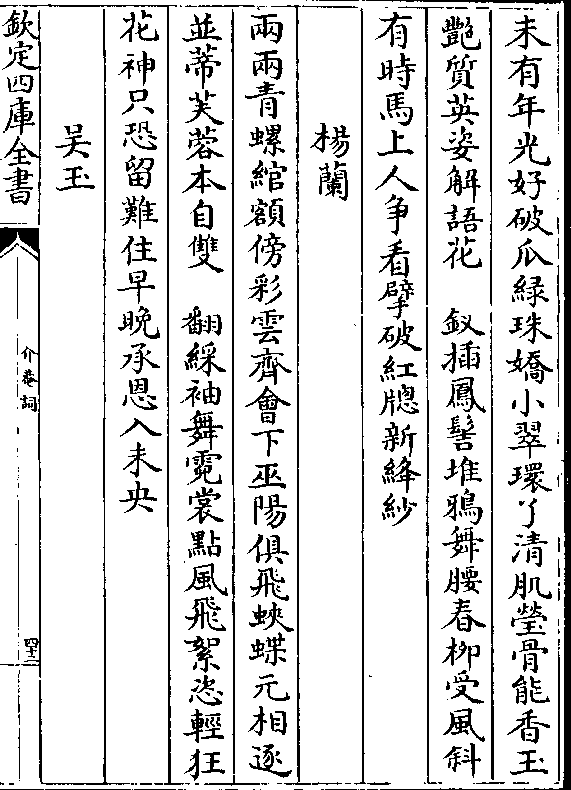 未有年光好破瓜綠珠嬌小翠環丫清肌瑩骨能香玉
艷質英姿解語花　釵插鳳髻堆鴉舞腰春柳受風斜
有時馬上人争看擘破紅牕新絳紗
楊蘭
兩兩青螺綰額傍彩雲齊會下巫陽俱飛蛺蝶元相逐
並蒂芙蓉本自雙　翻綵袖舞霓裳點風飛絮恣輕狂
花神只恐留難住早晚承恩入未央
吴玉
欽定四庫全書
介菴詞